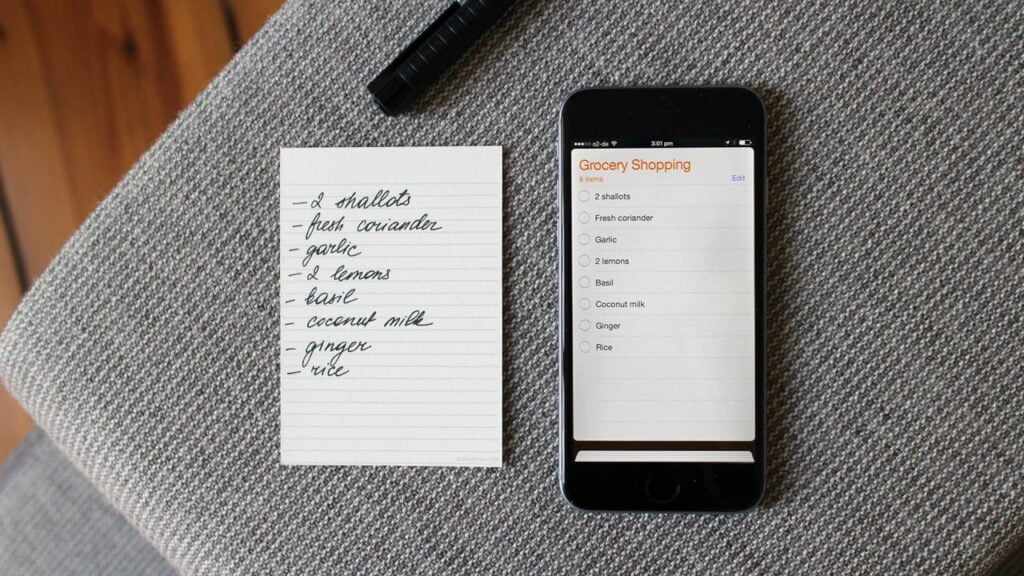 - 2 shallots
- fresh coriander
- garlic
- 2 lemons
- basil
- coconut milk
- ginger
- rice
o2-de 3:01 pm
Grocery Shopping
8 items Edit
2 shallots
Fresh coriander
Garlic
2 lemons
Basil
Coconut milk
Ginger
Rice